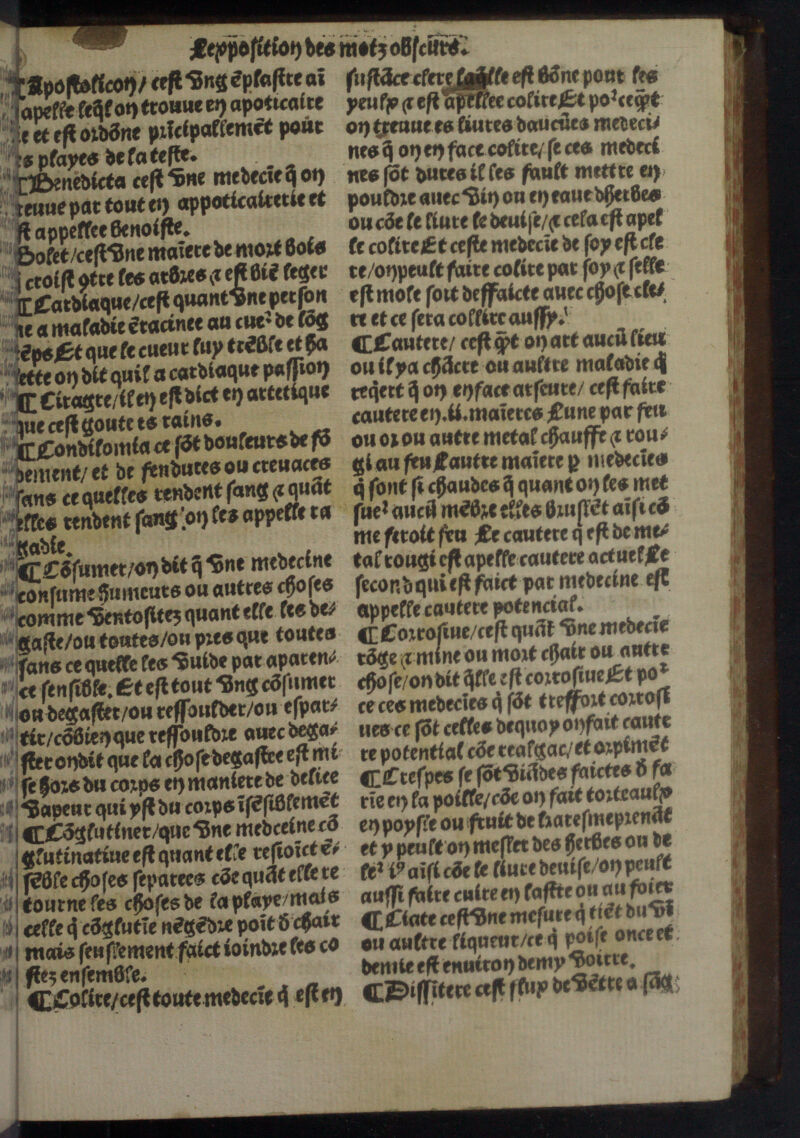 Lexpositiõ des motz obscurs.
Apostolicon/ cest vng ẽplastre ai
apelle leq̃l on trouue en apoticaire
e et est ordõne prĩcipallemẽt pour
es playes de la teste.
¶Benedicta cest vne medecĩe q̃ on
treuue par tout en appoticairerie et
st appellee benoiste.
Bolet/cest vne maĩere de mort bois
croist ꝯtre les arbres ⁊ est biẽ leger
¶Cardiaque/cest quant vne person
ne a maladie ẽracinee au cueꝛ de lõg
tẽps Et que le cueur luy trẽble et ha
lette on dit quil a cardiaque passion
¶Ciragre/il en est dict en artetique
que cest goute es mains.
¶Condilomia ce sõt douleurs de fõ
dement/ et de fendures ou creuaces
sans ce quelles rendent sang ⁊ quãt
elles rendent sang on les appelle ra
gadie.
¶Cõsumer/on dit q̃ vne medecine
consume humeurs ou autres choses
comme ventositez quant elle les de⸗
gaste/ou toutes/ou pres que toutes
sans ce quelle les vuide par aparen⸗
ce sensible. Et est tout vng cõsumer
ou degaster/ou ressoulder/ou espar⸗
tir/cõbien que ressouldre auec dega⸗
ster on dit que la chose degastee est mi
se hors du corps en maniere de deliee
vapeur qui yst du corps ĩsẽsiblemẽt
¶Cõglutiner/que vne medceine cõ
glutinatiue est quant elle resioict ẽ⸗
sẽble choses separees cõe quãt elle re
tourne les choses de la playe/mais
celle q̃ cõglutie nẽgẽdre poĩt d̃ chair
mais seullement faict ioindre les co
stez ensemble.
¶Colire/cest toute medecĩe q̃ est en
sustãce clere laq̃lle est bõne pour les
yeulx ⁊ est apellee colire Et poꝛce q̃t
on treuue es liures daucũes medeci⸗
nes q̃ on en face colire/ se ces medeci
nes sõt dures il les fault mettre en
pouldre auec vin ou en eaue dherbes
ou cõe le liure le deuise/⁊ cela est apel
le colire Et ceste medecĩe de soy est cle
re/on peult faire colire par soy ⁊ selle
est mole soit deffaicte auec chose cle⸗
re et ce sera collire aussy.
¶Cautere/ cest q̃t on art aucũ lieu
ou il ya chãcre ou aultre maladie q̃
req̃ert q̃ on en face arseure/ cest faire
cautere en.ii.maĩeres Lune par feu
ou or ou autre metal chauffe ⁊ rou⸗
gi au feu Lautre maĩere p medecĩes
q̃ sont si chaudes q̃ quant on les met
sueꝛ aucũ mẽbre elles brussẽt aĩsi cõ
me feroit feu Le cautere q̃ est de me⸗
tal rougi est apelle cautere actuel Le
second qui est faict par medecine est
appelle cautere potencial.
¶Corrosiue/cest quãt vne medecĩe
rõge ⁊ mine ou mort chair ou autre
chose/on dit q̃lle est corrosiue Et poꝛ
ce ces medecĩes q̃ sõt tresfort corrosi
ues ce sõt celles dequoy on fait caute
re potential cõe realgac/ et orpimẽt
¶Crespes se sõt viãdes faictes d̃ fa
rĩe en la poille/cõe on fait torteaulx
en poysle ou fruit de karesmeprenãt
et y peult on mesler des herbes ou de
leꝛ iꝰ aĩsi cõe le liure deuise/on peult
aussi faire cuire en lastre ou au foier
¶Ciate cest vne mesure q̃ tiẽt du vĩ
ou aultre liqueur/ce q̃ poise once et
demie est enuiron demy voirre.
¶Dissitere cest flux de vẽtre a sãg